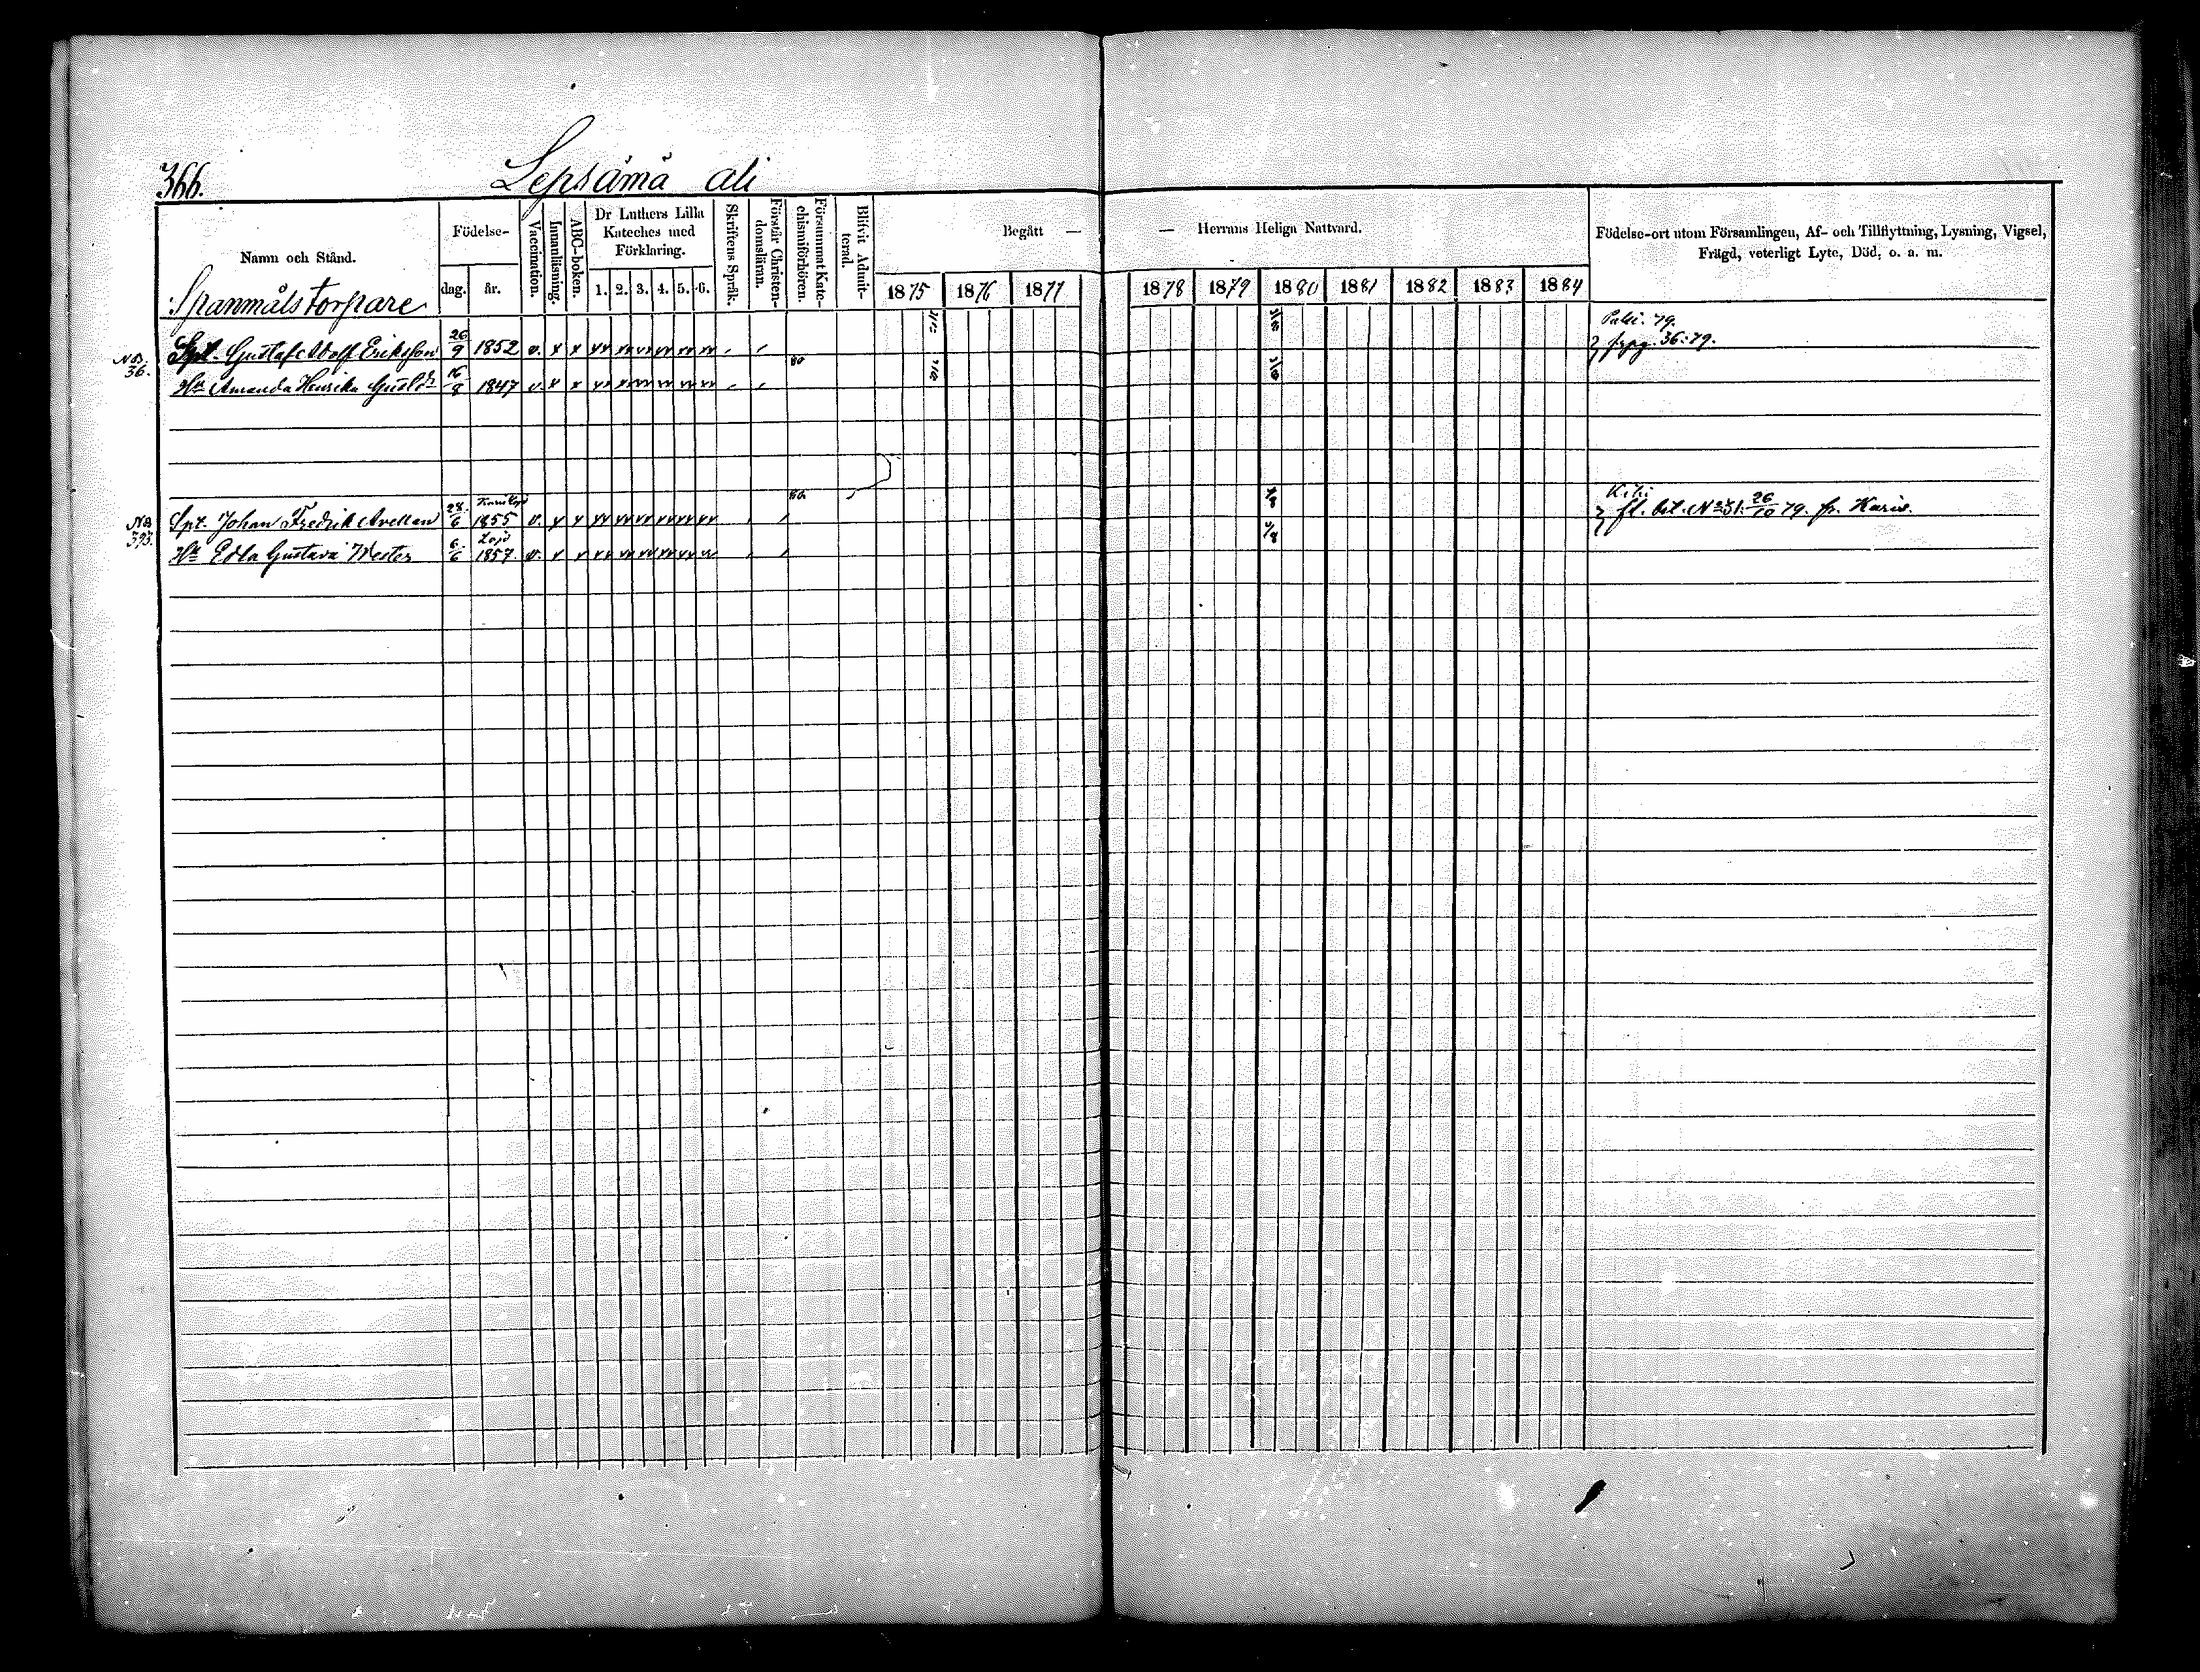 366.
Lepsämä ali
Namn och Stånd.
Födelse-
dag.
år.
Vaccination.
Innanläsning.
ABC-boken.
Dr Luthers Lilla
Kateches med
Förklaring.
1. 2. 3. 4. 5. 6.
Skriftens Språk.
Förstår Christen-
domsläran.
Försummat Kate-
chismiförhören.
Blifvit Admit-
terad.
Begått —
— Herrans Heliga Nattvard.
1875 1876 1877 1878 1879 1880 1881 1882 1883 1884
Födelse-ort utom Församlingen, Af- och Tillflyttning, Lysning, Vigsel,
Frägd, veterligt Lyte, Död, o. a. m.
Spanmålstorpare
36. Spt. Gustaf Adolf Eriksson 26/9 1852 v. x x 79. 36:79.
Hu Amanda Henrika Gustdr 16/8 1847 v. x x 80
393. Spt. Johan Fredrik Avellan 28/6 1855 v. x x 80 fl. bet. No 31. 26/10 79. fr. Karis.
Hu Edla Gustava Wester 6/6 Lojo 1857. v. x x